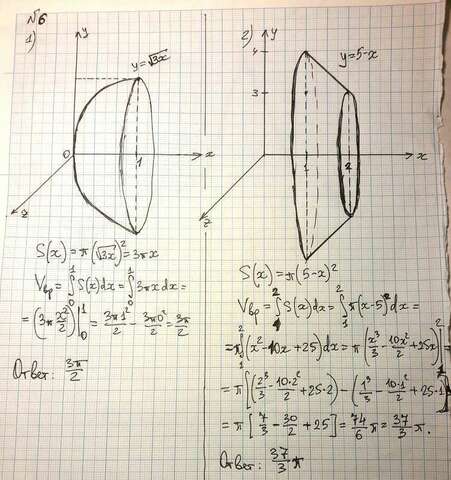 №6
1)
y
y=√3x
0
1
x
z
S(x)=π(√3x)²=3πx
Vвр=∫₀¹S(x)dx=∫₀¹3πx dx=
=(3π x²/2)|₀¹=3π1²/2-3π0²/2=3π/2
Ответ: 3π/2
2)
y
y=5-x
4
3
1
2
x
z
S(x)=π(5-x)²
Vвр=∫₁²S(x)dx=∫₁²π(x-5)²dx=
=π∫₁²(x²-10x+25)dx=π(x³/3-10x²/2+25x)|₁²=
=π[(2³/3-10·2²/2+25·2)-(1³/3-10·1²/2+25·1)]=
=π[7/3-30/2+25]=74/6π=37/3π.
Ответ: 37/3π